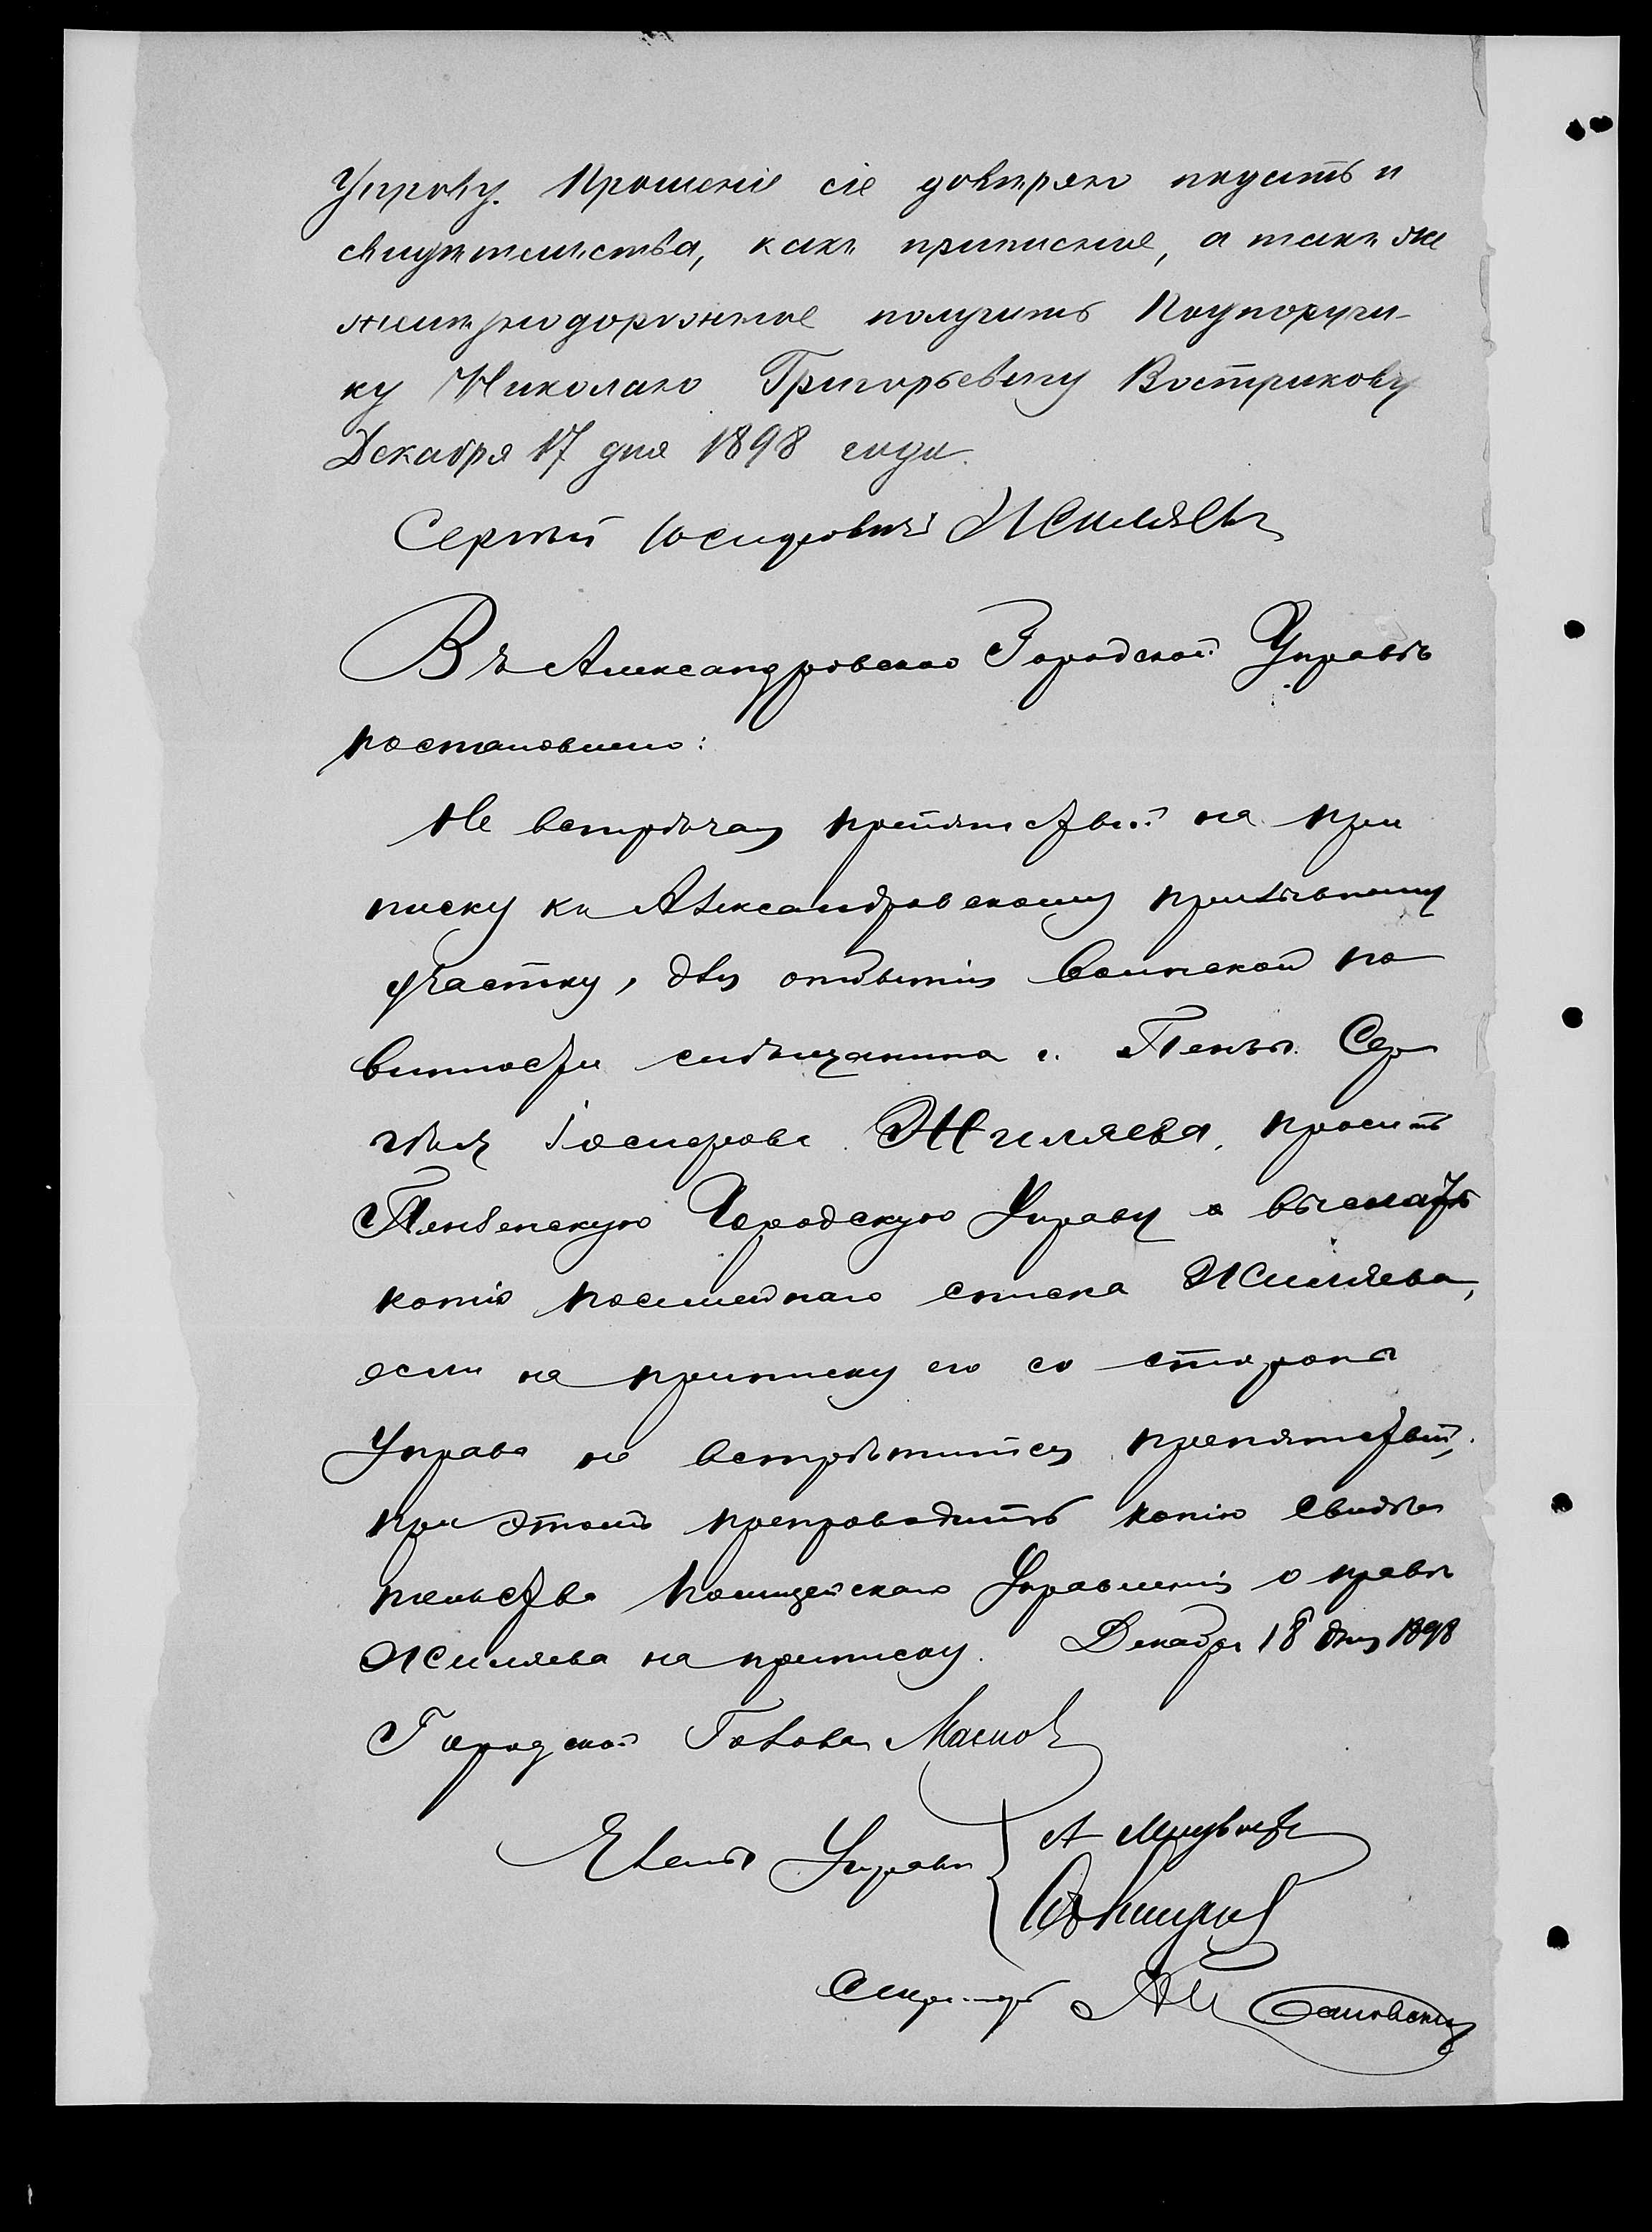 Управу. Прошеніе сіе довѣряю подать и
свидѣтельства, какъ приписное, а такъ же
желѣзнодорожное получить Подпоручи-
ку Николаю Григорьевичу Вострикову
Декабря 17 дня 1898 года.
Сергѣй Іосифовичъ Жиляевъ
Въ Александровской Городской Управѣ
постановлено:
Не встрѣчая препятствій на при
писку къ Александровскому призывному
участку, для отбытія воинской по
винности мѣщанина г. Пензы Сер
гѣя Іосифова Жиляева, просить
Пензенскую Городскую Управу о высылкѣ
копію посемейнаго списка Жиляева,
если на приписку его со стороны
Управы не встрѣтится препятствій,
при этомъ препроводить копію свидѣ
тельства Полицейскаго Управленія о правѣ
Жиляева на приписку. Декабря 18 дня 1898
Городской Голова Масловъ
Члены Управы
Секретарь